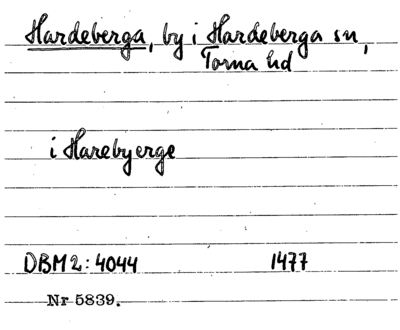 Hardeberga, by i Hardeberga sn,
Torna hd
i Harebyerge
DBM 2: 4044 1477
Nr 5839.